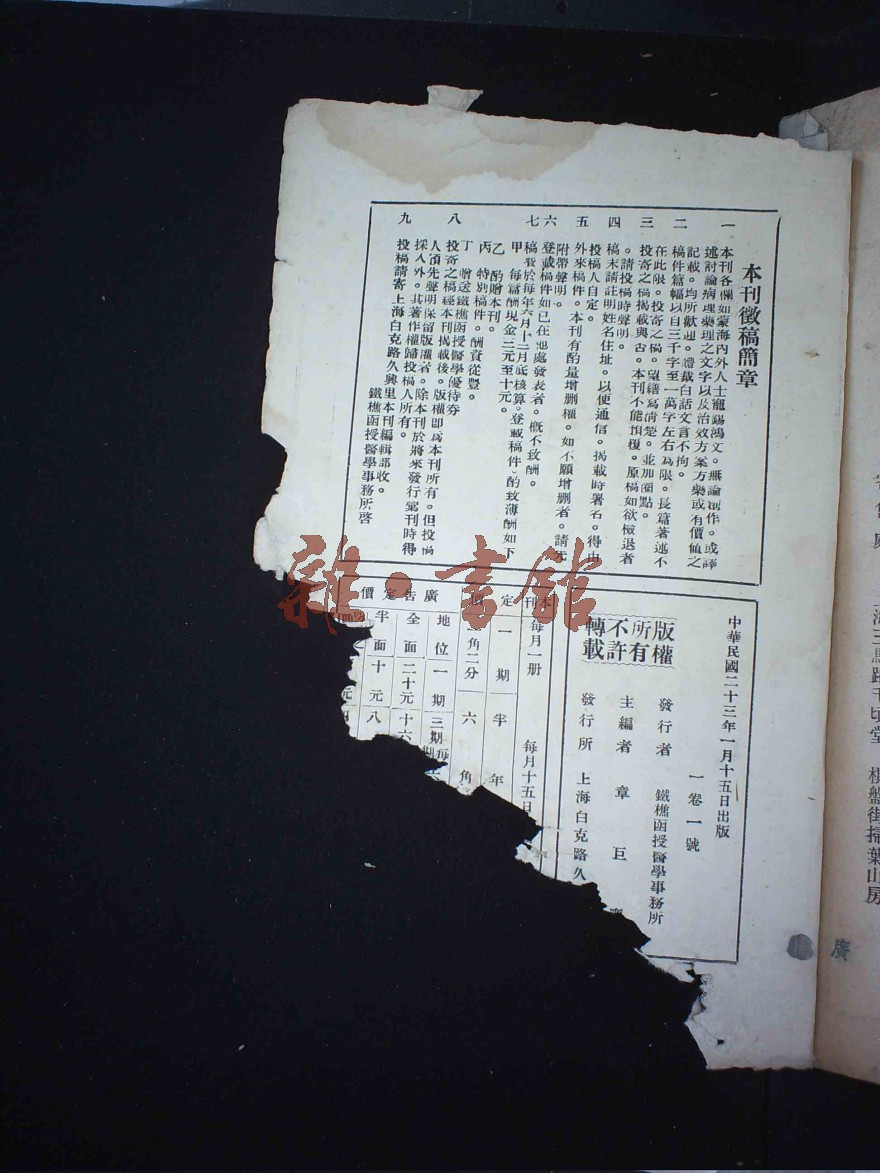 本刊徵稿簡章
一 本刊各欄如蒙海內外人士寵錫鴻文。無論創作。或譯
述討論病理藥理之文字以及治效方案方藥或有價値之
記載。均所歡迎。體裁白話文言不拘。
二 稿件篇幅以自三千字至一萬字左右為限。長篇著述不
在此限。投寄之稿。望繕寫清楚。並加圈點。
三 投寄之稿揭載與否。本刊不能預復。原稿如欲檢退者
。請投稿時聲明。
四 稿末請註明姓名住址。以便通信。揭載時署名。得由
投稿人自定。
五 外來稿件。本刊有酌量增删權。如不願增删者。請先
附帶聲明。
六 登載稿件如已在他處發表者。概不致酬。
七 稿費於每年六月十二月底核算。登載稿件。酌致薄酬如下
甲 每篇酬現金三元至十元。
乙 酌贈本刊。
丙 特別稿件。酬資從豐。
丁 贈送鐵樵函授醫學優待券
八 投寄之稿經本刊揭載後。版權即為本刊所有。但投稿
人須先聲明保留版權者。除本刊於將來發行彙刊時得
採入外。其著作權歸投稿人所有。
九 投稿請寄上海白克路久興里本刊編輯部收。
鐵樵函授醫學事務所啓
中華民國二十三年一月十五日出版
一卷一號
版權所有
不許轉載
發行者 鐵樵函授醫學事務所
主編者 章巨
發行所 上海白克路久
本刊定
每月一册 每月十五日
一期 半年
角二分 六角
廣告定價
地位 一期 三期
全面 二十元 十六
半面 十元 八
三馬路千頃堂 棋盤街掃葉山房
廣
雜·書館